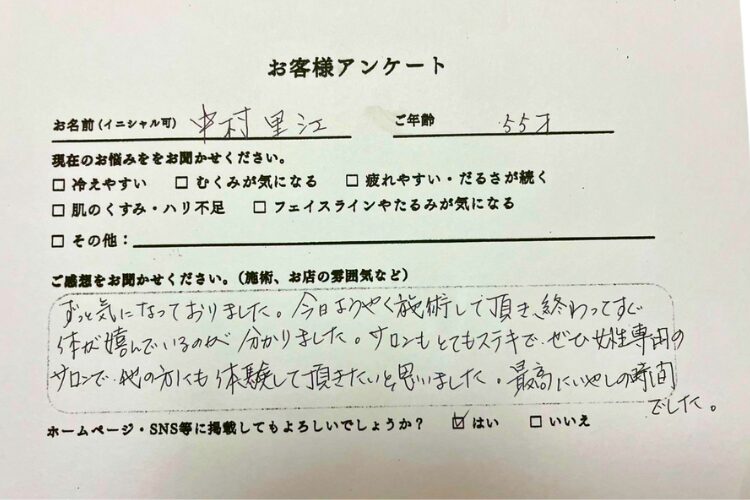 お客様アンケート
お名前(イニシャル可) 中村里江 ご年齢 55才
現在のお悩みををお聞かせください。
□ 冷えやすい □ むくみが気になる □ 疲れやすい・だるさが続く
□ 肌のくすみ・ハリ不足 □ フェイスラインやたるみが気になる
□ その他:
ご感想をお聞かせください。(施術、お店の雰囲気など)
ずっと気になっておりました。今日ようやく施術して頂き、終わってすぐ
体が嬉んでいるのが分かりました。サロンもとてもステキで、ぜひ女性専用の
サロンで、他の方にも体験して頂きたいと思いました。最高にいやしの時間
でした。
ホームページ・SNS等に掲載してもよろしいでしょうか? ☑ はい □ いいえ